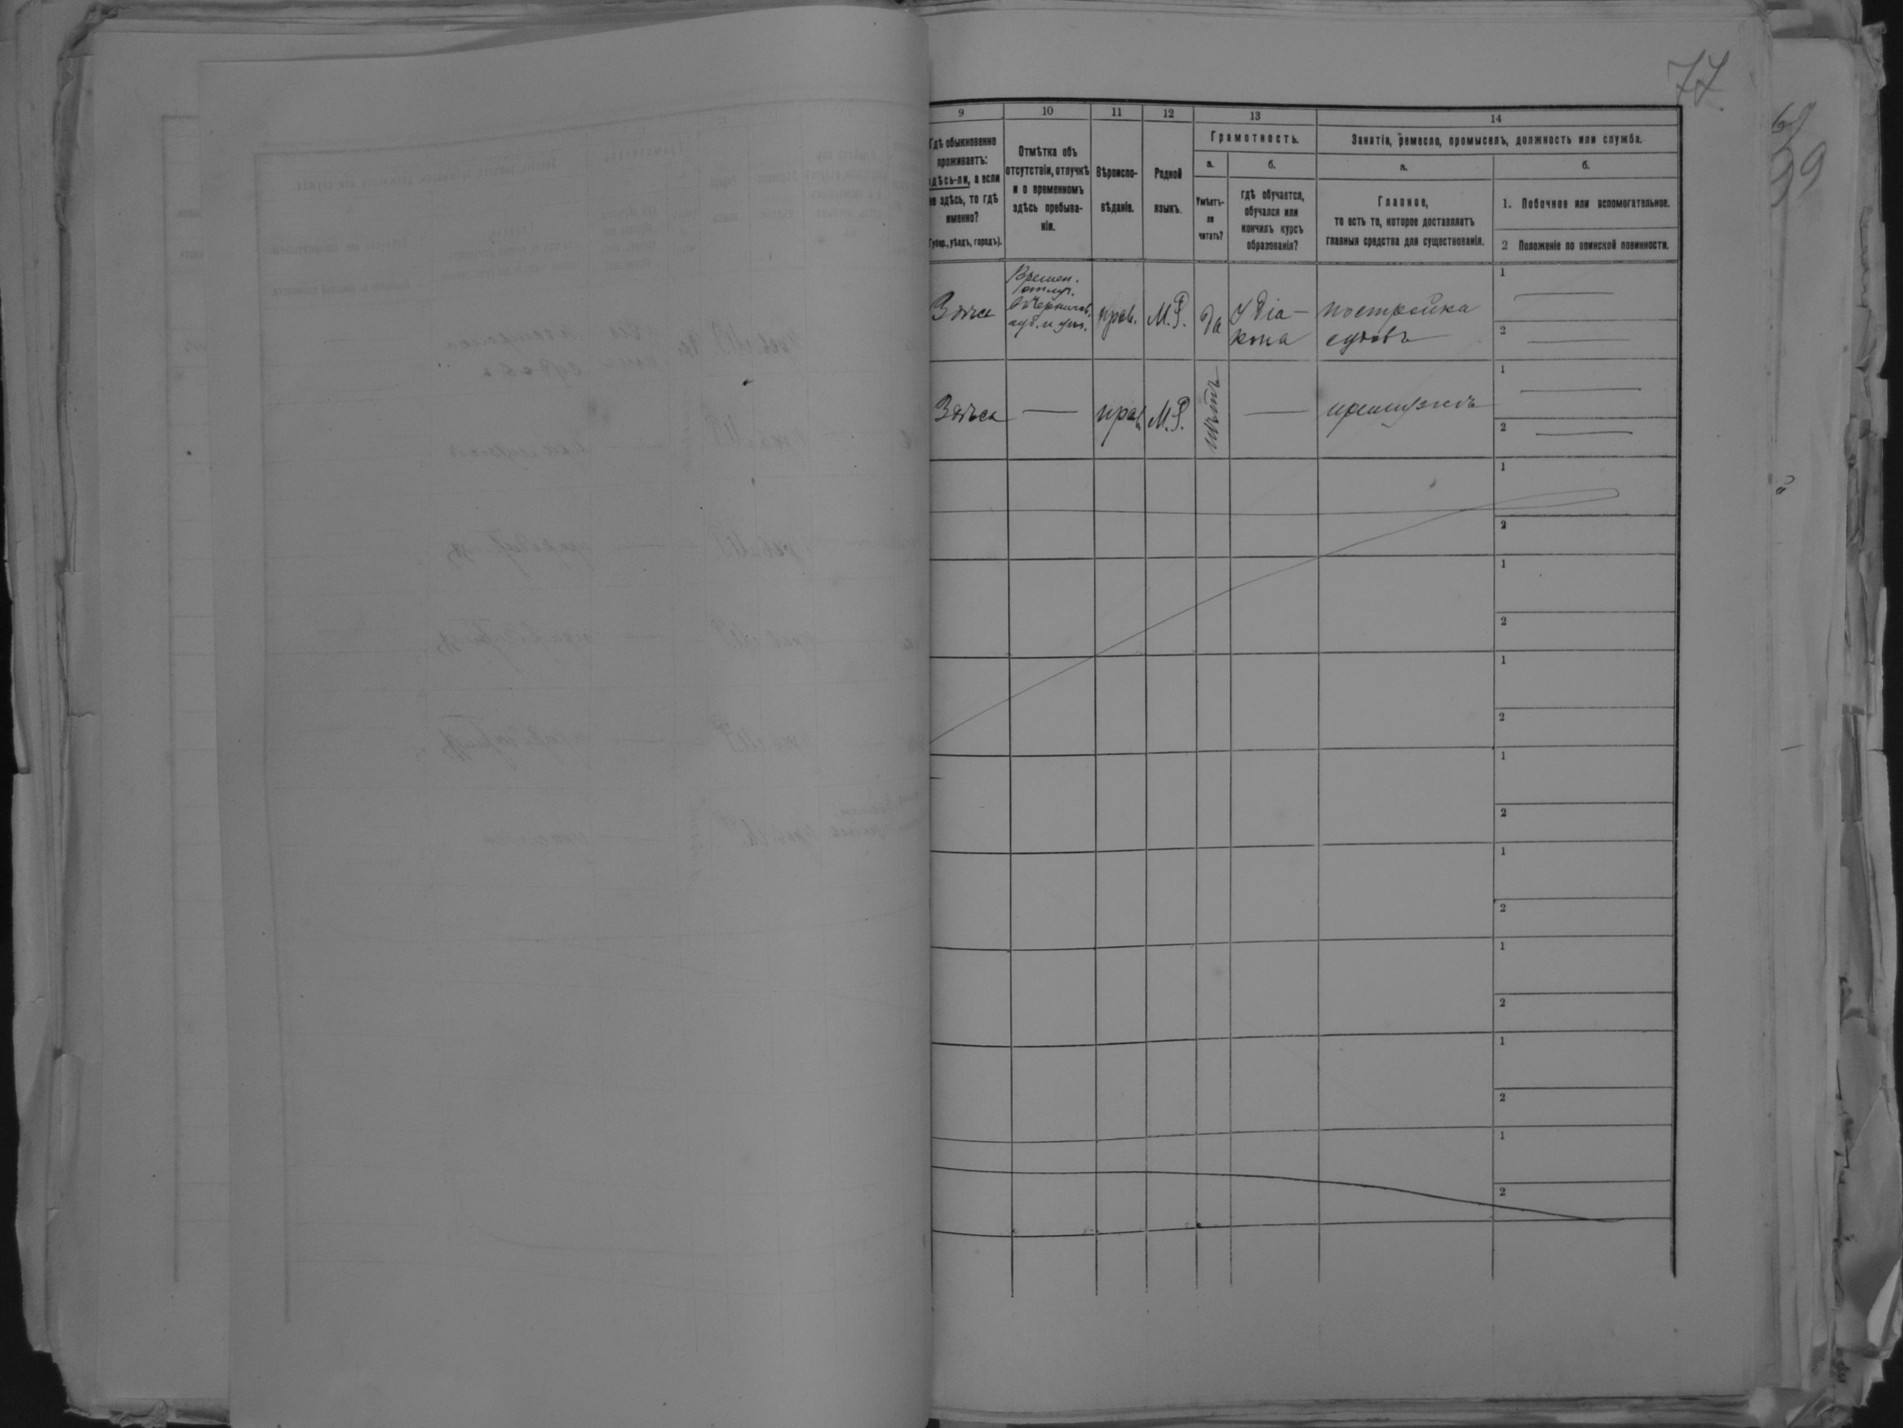 77
9 10 11 12 13 14
Гдѣ обыкновенно
проживаетъ:
здѣсь-ли, а если
не здѣсь, то гдѣ
именно?
(Губер., уѣздъ, городъ).
Отмѣтка объ
отсутствіи, отлучкѣ
и о временномъ
здѣсь пребыва-
ніи.
Вѣроиспо-
вѣданіе.
Родной
языкъ.
Грамотность.
а. б.
Умѣетъ-
ли
читать?
гдѣ обучается,
обучался или
кончилъ курсъ
образованія?
Занятіе, ремесло, промыселъ, должность или служба.
а. б.
Главное,
то есть то, которое доставляетъ
главныя средства для существованія.
1. Побочное или вспомогательное.
2 Положеніе по воинской повинности.
Здѣсь
Времен.
отлуч.
въ Чернигов.
губ. и уѣз.
прав.
М. Р.
да
У Діа-
кона
постройка
судовъ
1
2
Здѣсь
—
прав
М. Р.
нѣтъ
—
при мужѣ
1
2
1
2
1
2
1
2
1
2
1
2
1
2
1
2
1
2